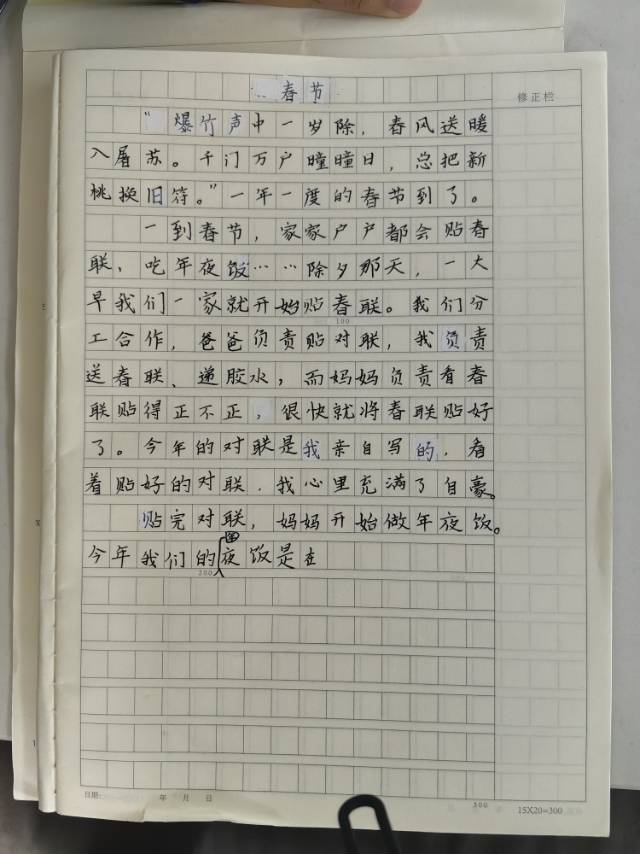 春节
修正栏
“爆竹声中一岁除，春风送暖
入屠苏。千门万户曈曈日，总把新
桃换旧符。”一年一度的春节到了。
一到春节，家家户户都会贴春
联、吃年夜饭……除夕那天，一大
早我们一家就开始贴春联。我们分
100
工合作，爸爸负责贴对联，我负责
送春联、递胶水，而妈妈负责看春
联贴得正不正，很快就将春联贴好
了。今年的对联是我亲自写的，看
着贴好的对联，我心里充满了自豪。
贴完对联，妈妈开始做年夜饭。
今年我们的团夜饭是在
200
日期: 年 月 日
300
15X20=300